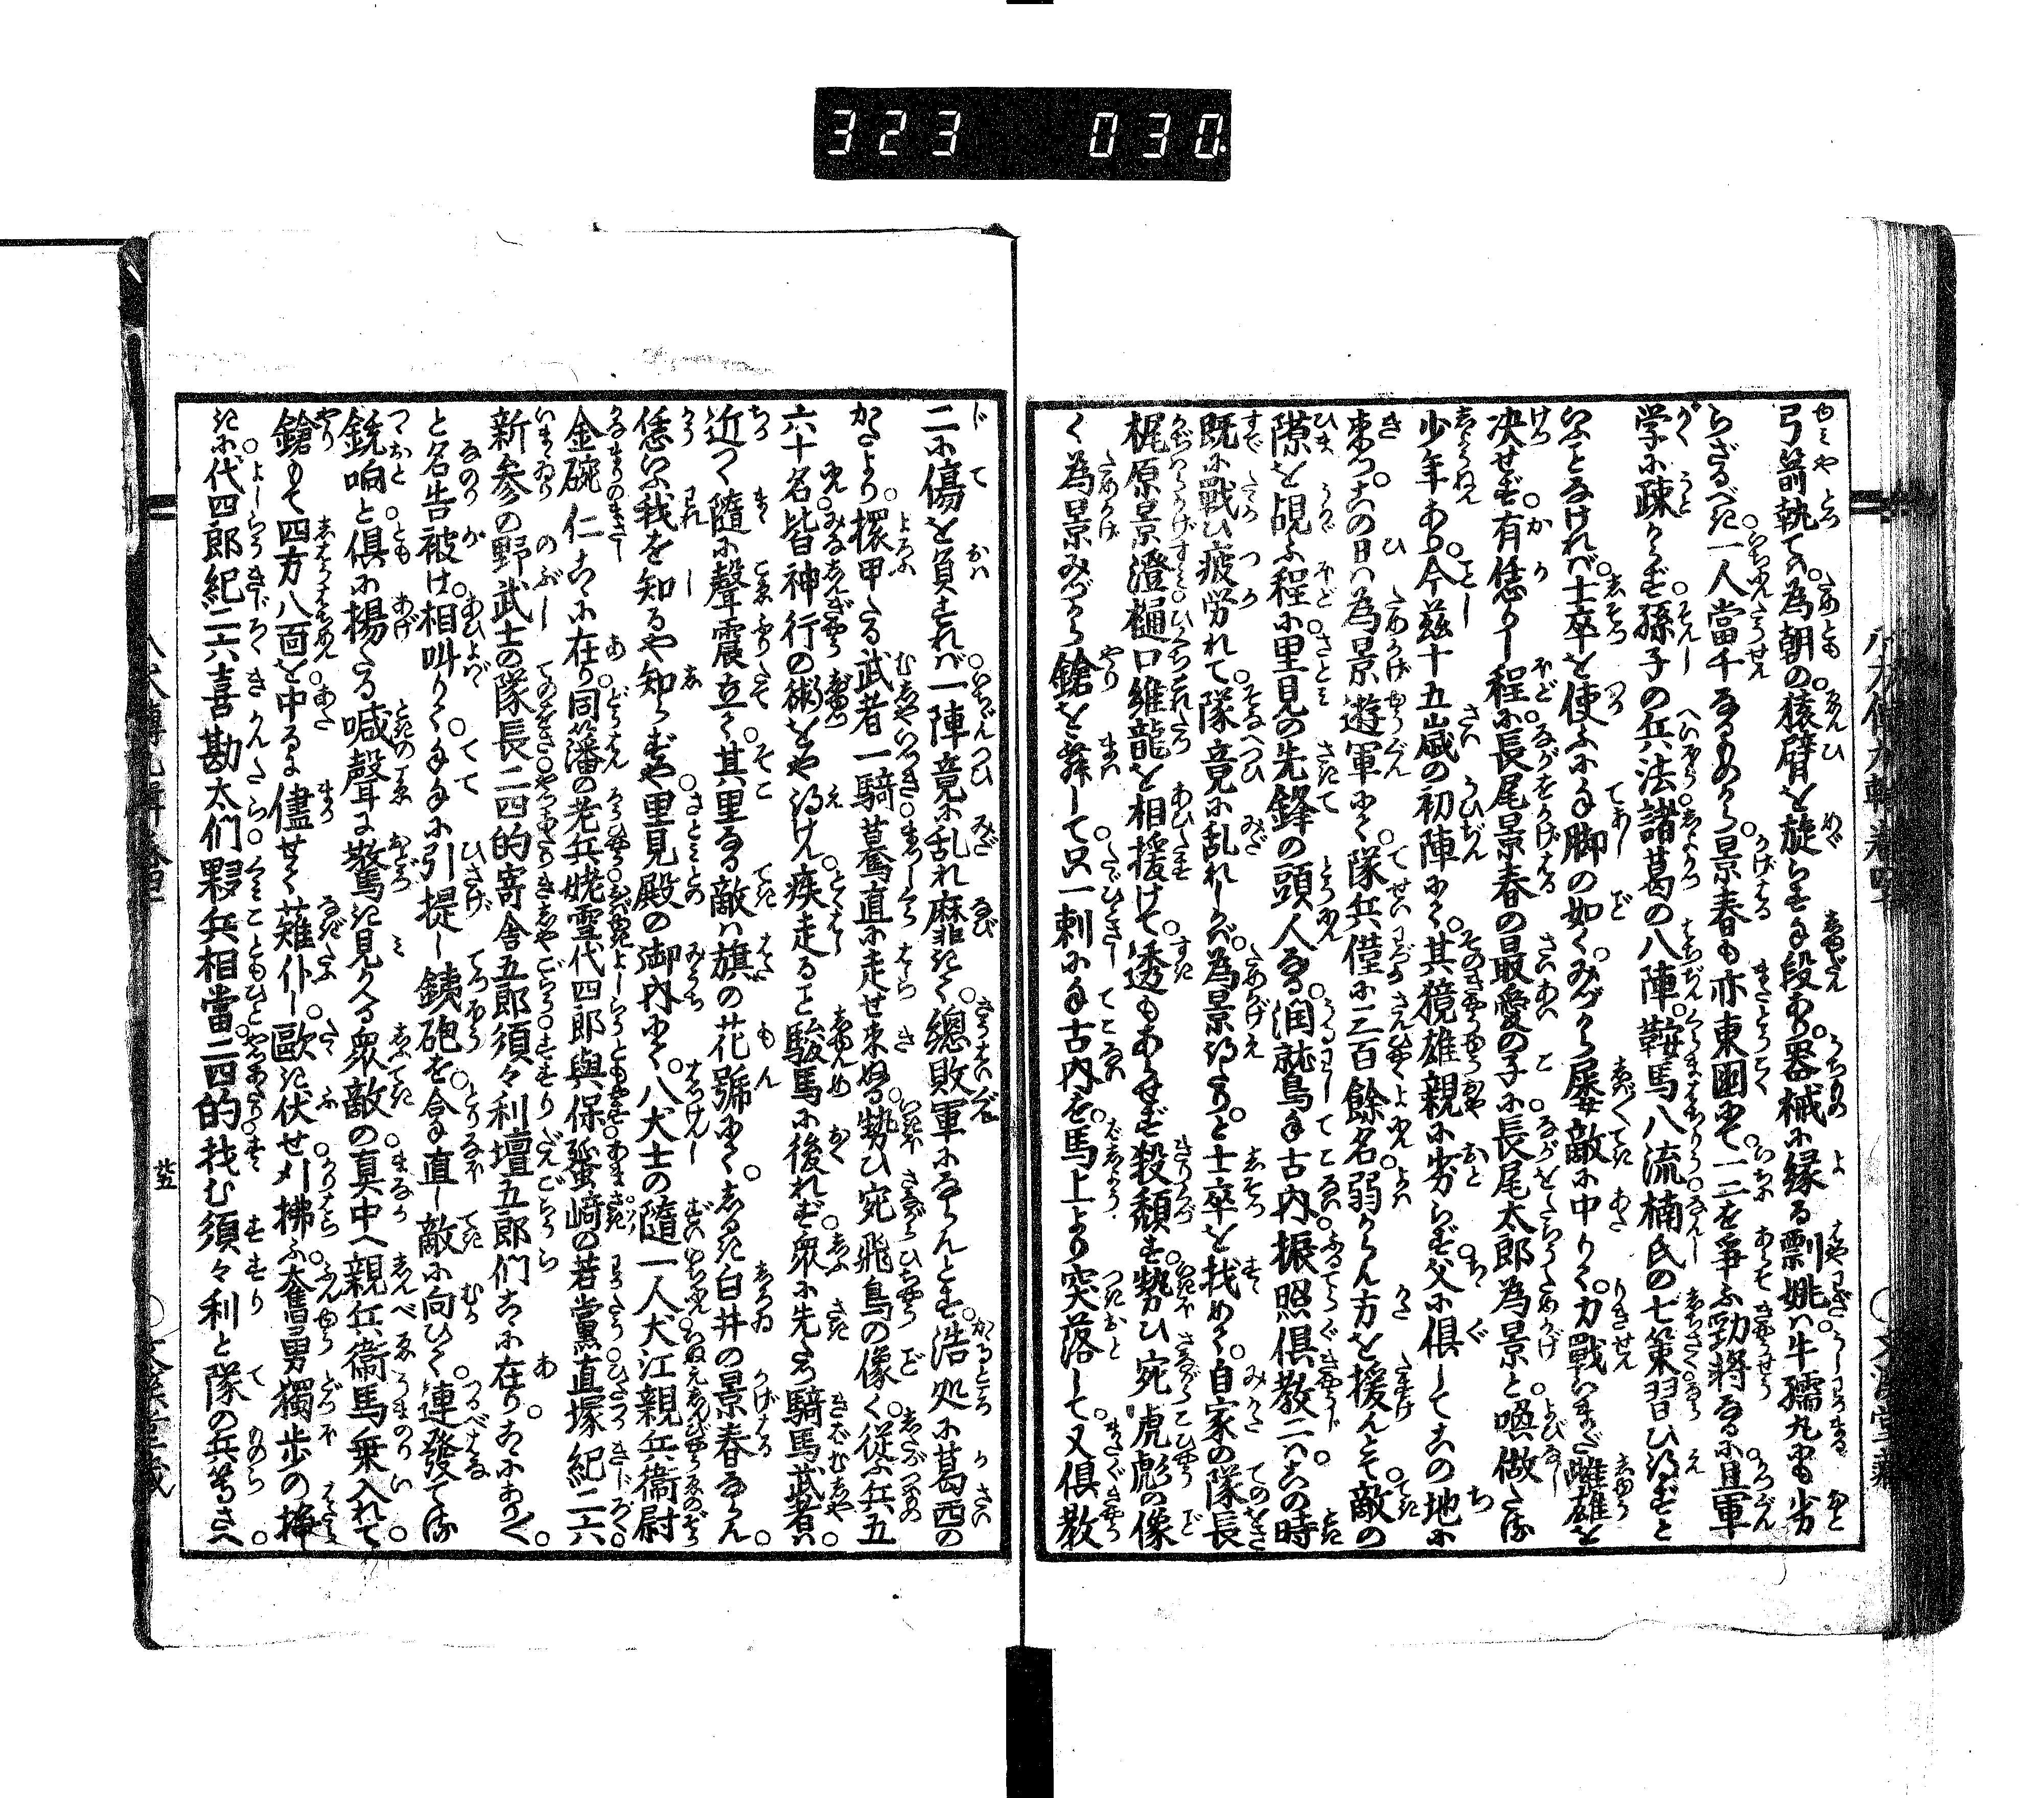 323 030
弓箭執ては為朝の猿臂を旋らす手段あり器械に縁る剽姚は牛孺丸にも劣
らざるべき一人當千なるものから景春も亦東國にて一二を爭ふ勍將なるに且軍
学に疎からず孫子の兵法諸葛の八陣鞍馬八流楠氏の七策習ひ得ずと
いふことなければ士卒を使ふに手脚の如くみづから屡敵に中りて力戰いまだ雌雄を
决せず有恁りし程に長尾景春の最愛の子に長尾太郎為景と喚做たる
少年あり今茲十五歳の初陣にて其獷雄親に劣らず父に倶してこの地に
来つこの日は為景遊軍にて隊兵僅に三百餘名弱からん方を援んとて敵の
隙を覘ふ程に里見の先鋒の頭人なる潤鷲手古内振照倶教二はこの時
既に戰ひ疲労れて隊竟に乱れしかば為景得たりと士卒を找めて自家の隊長
梶原景澄樋口維龍を相援けて透もあらせず殺頽す勢ひ宛虎彪の像
く為景みづから鎗を舞して只一刺に手古内を馬上より突落して又倶教
二に傷を負すれば一陣竟に乱れ麻非きて總敗軍にならんとす浩処に葛西の
かたより擐甲たる武者一騎驀直に走せ来ぬる勢ひ宛飛鳥の像く従ふ兵五
六十名皆神行の術をや得けん疾走ること駿馬に後れず衆に先たち騎馬武者は
近つく隨に聲震立て其里なる敵は旗の花號にてしるき白井の景春ならん
恁いふ我を知るや知らずや里見殿の御内にて八犬士の隨一人犬江親兵衞尉
金碗仁こゝに在り同藩の老兵姥雪代四郎與保蜑﨑の若黨直塚紀二六
新参の野武士の隊長二四的寄舎五郎須々利壇五郎們こゝに在りこゝにありて
と名告被け相叫りて手手に引提し銕砲を合手直し敵に向ひて連發てる
銃响と倶に揚たる喊聲に驚き見かへる衆敵の真中へ親兵衞馬乗入れて
鎗もて四方八面を中るに儘せて薙仆し毆き伏せ刈拂ふ奮勇獨歩の挣
きに代四郎紀二六喜勘太們夥兵相當二四的找む須々利と隊の兵等さへ